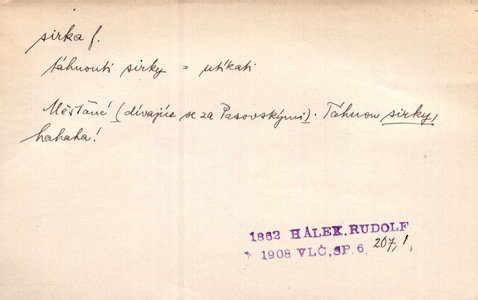 sirka f.
táhnouti sirky = utíkati
Měšťané (dívajíce se za Pasovskými). Táhnou sirky,
hahaha!
1862 HÁLEK, RUDOLF
* 1908 VLČ, SP. 6. 207, 1,